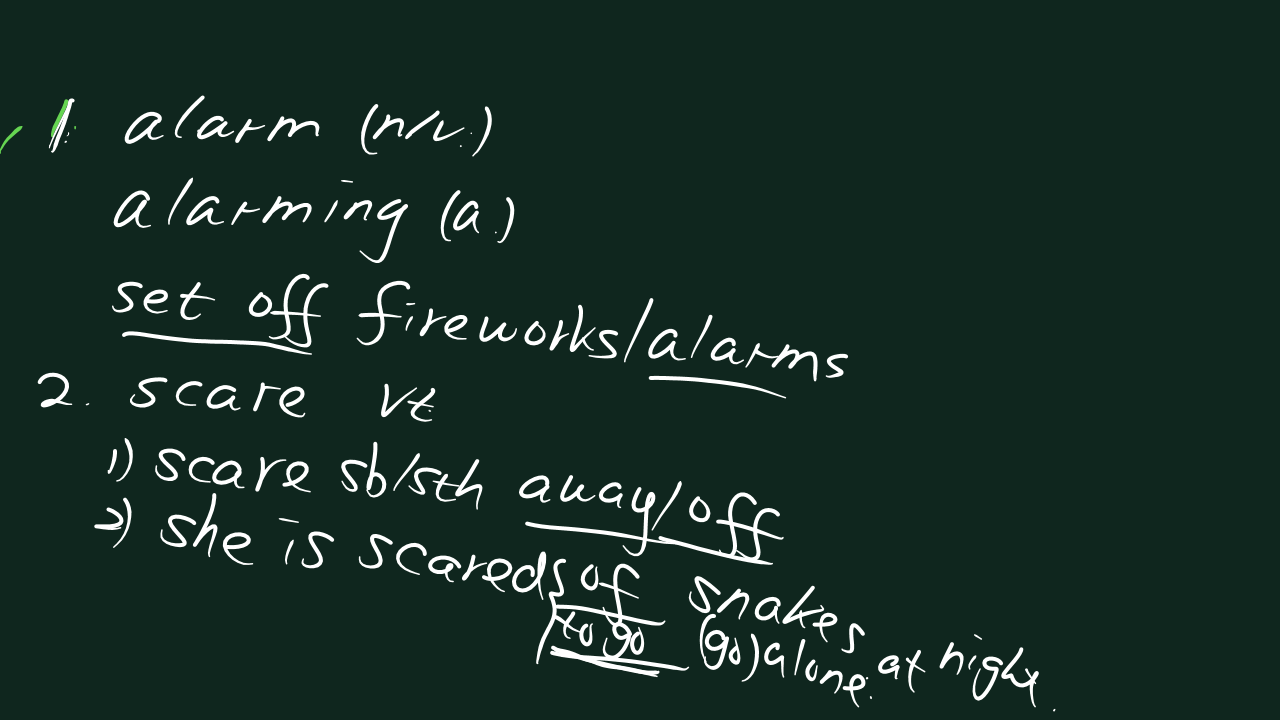 1. alarm (n/v.)
alarming (a.)
set off fireworks/alarms
2. scare vt
1) scare sb/sth away/off
2) she is scared of snakes
to go (go) alone. at night.